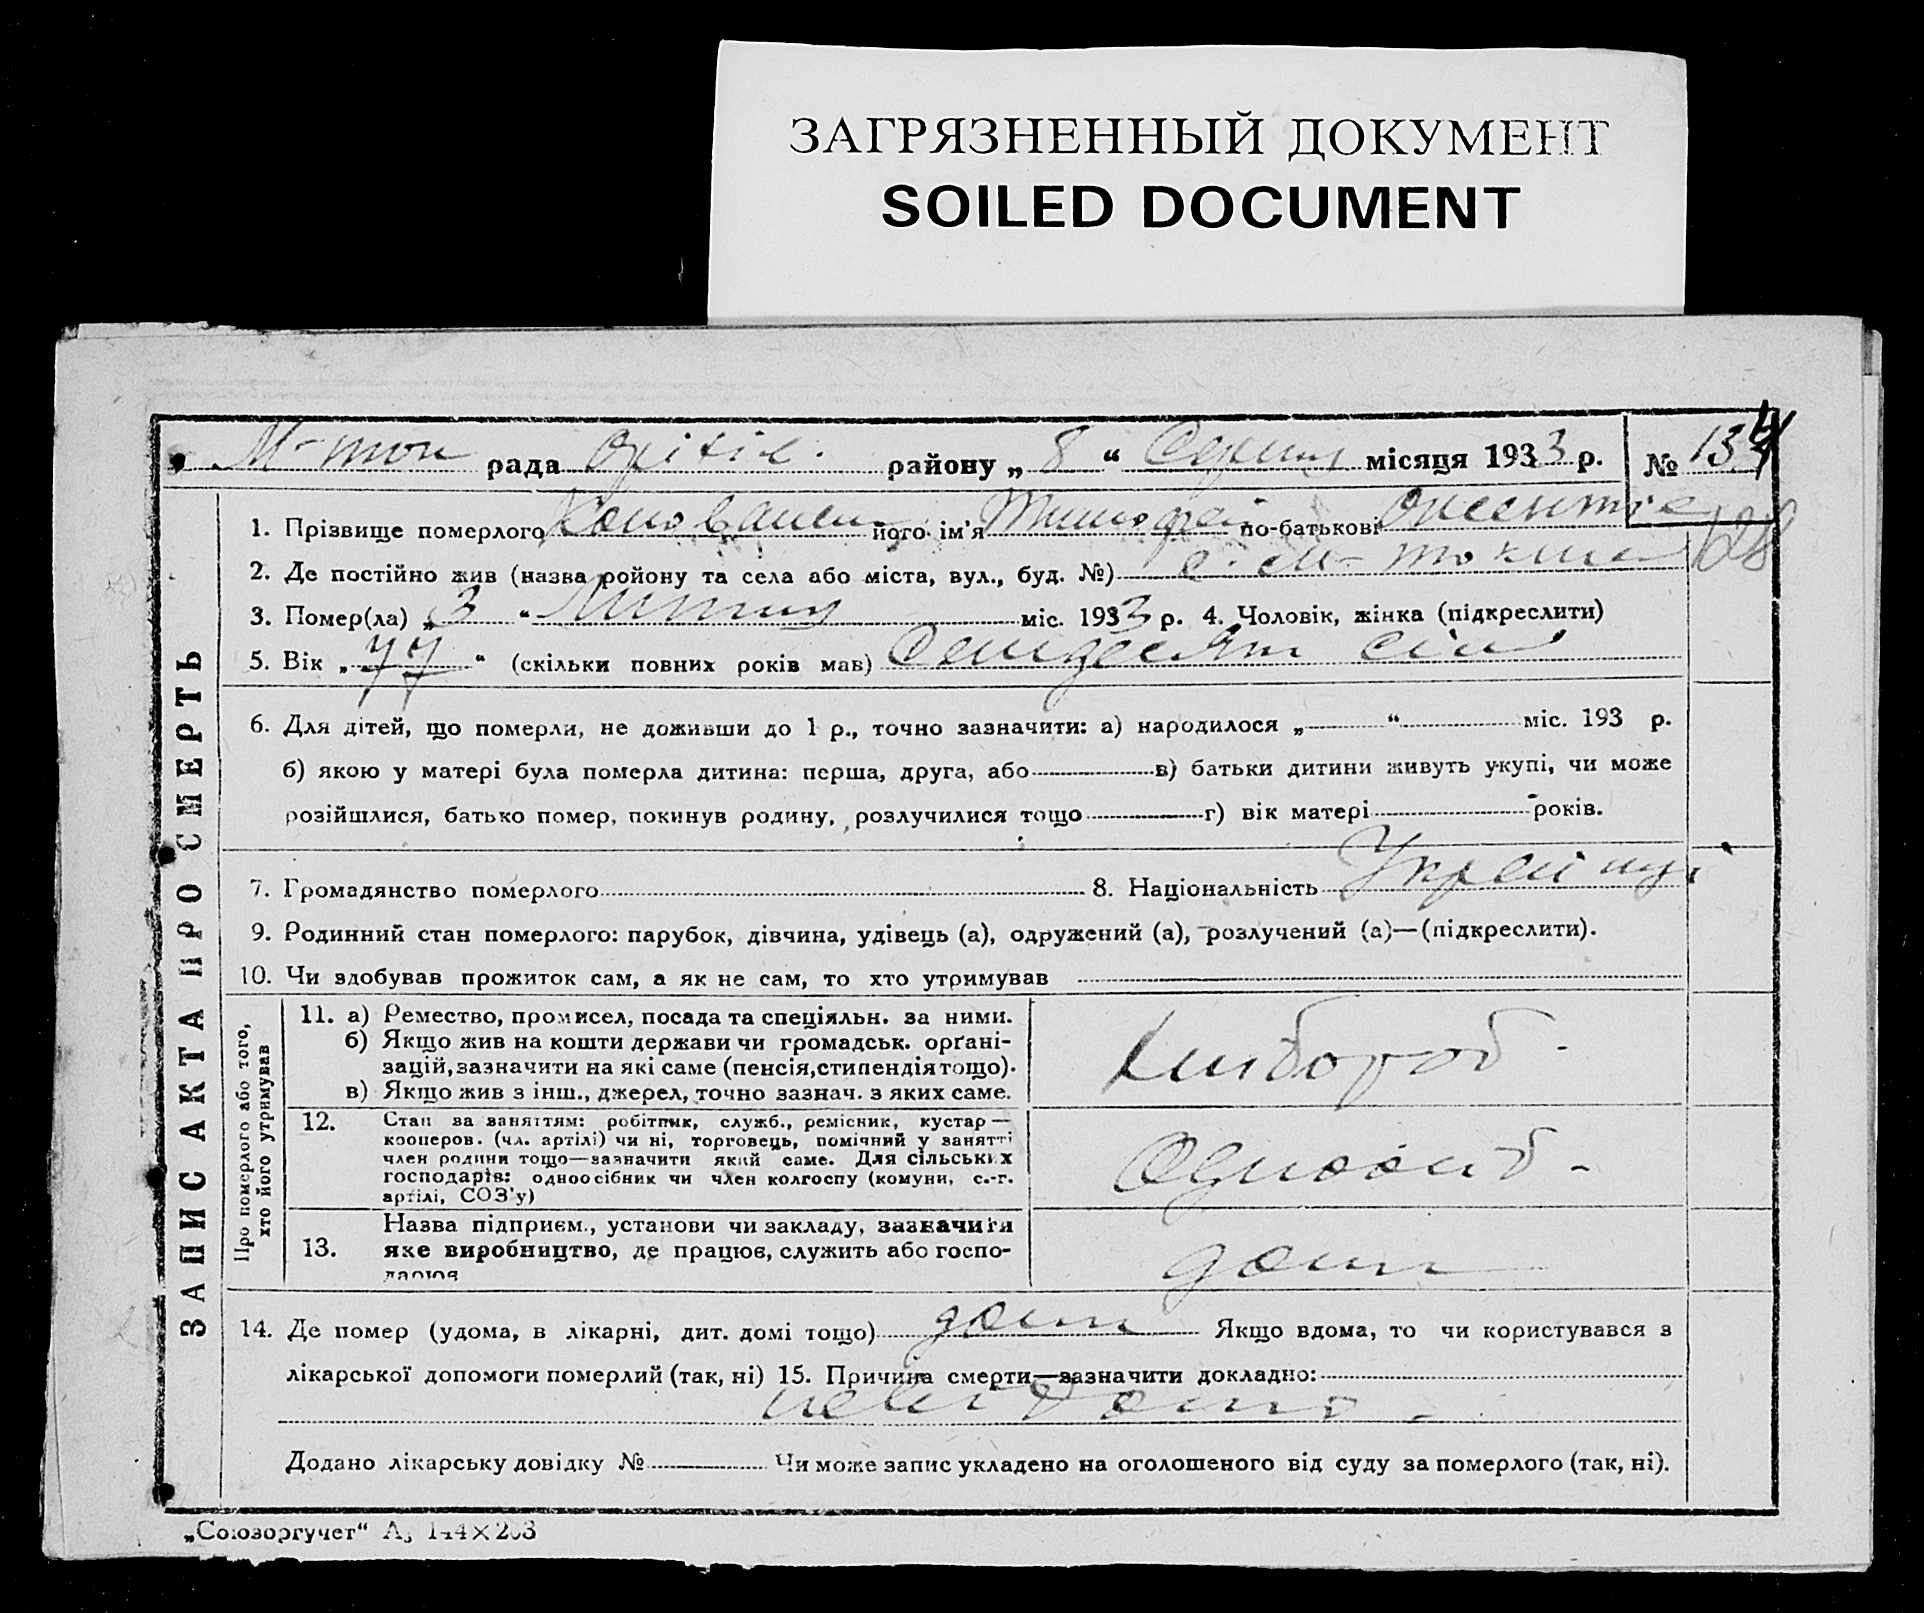 ЗАГРЯЗНЕННЫЙ ДОКУМЕНТ
SOILED DOCUMENT
М-ток рада Оріхів. району „ 8 “ Серпня місяця 1933 р. № 134
1. Прізвище померлого Коновален його ім'я Тимофей по-батькові
128
2. Де постійно жив (назва ройону та села або міста, вул., буд. №) с. М-токма
3. Помер(ла) „ 3 “ Липня міс. 1933 р. 4. Чоловік, жінка (підкреслити)
5. Вік „ 77 “ (скільки повних років мав) Семдесят сім
6. Для дітей, що померли, не доживши до 1 р., точно зазначити: а) народилося „ “ міс. 193 р.
б) якою у матері була померла дитина: перша, друга, або в) батьки дитини живуть укупі, чи може
розійшлися, батько помер, покинув родину, розлучилися тощо г) вік матері років.
7. Громадянство померлого 8. Національність Україниц
9. Родинний стан померлого: парубок, дівчина, удівець (а), одружений (а), розлучений (а)—(підкреслити).
10. Чи здобував прожиток сам, а як не сам, то хто утримував
ЗАПИС АКТА ПРО СМЕРТЬ
Про померлого або того, хто його утримував
11. а) Ремество, промисел, посада та спеціяльн. за ними.
б) Якщо жив на кошти держави чи громадськ. орґані-
зацій, зазначити на які саме (пенсія, стипендія тощо).
в) Якщо жив з інш., джерел, точно зазнач. з яких саме.
Хлібороб -
12. Стан за заняттям: робітник, служб., ремісник, кустар —
кооперов. (чл. артілі) чи ні, торговець, помічний у занятті
член родини тощо—зазначити який саме. Для сільських
господарів: одноосібник чи член колгоспу (комуни, с.-г.
артілі, СОЗ'у)
Одноосіб -
13. Назва підприєм., установи чи закладу, зазначити
яке виробництво, де працюв, служить або госпо-
дарюв
дома
14. Де помер (удома, в лікарні, дит. домі тощо) дома Якщо вдома, то чи користувався з
лікарської допомоги померлий (так, ні) 15. Причина смерти—зазначити докладно:
невідомо -
Додано лікарську довідку № Чи може запис укладено на оголошеного від суду за померлого (так, ні).
„Союзоргучет“ А5 144×203